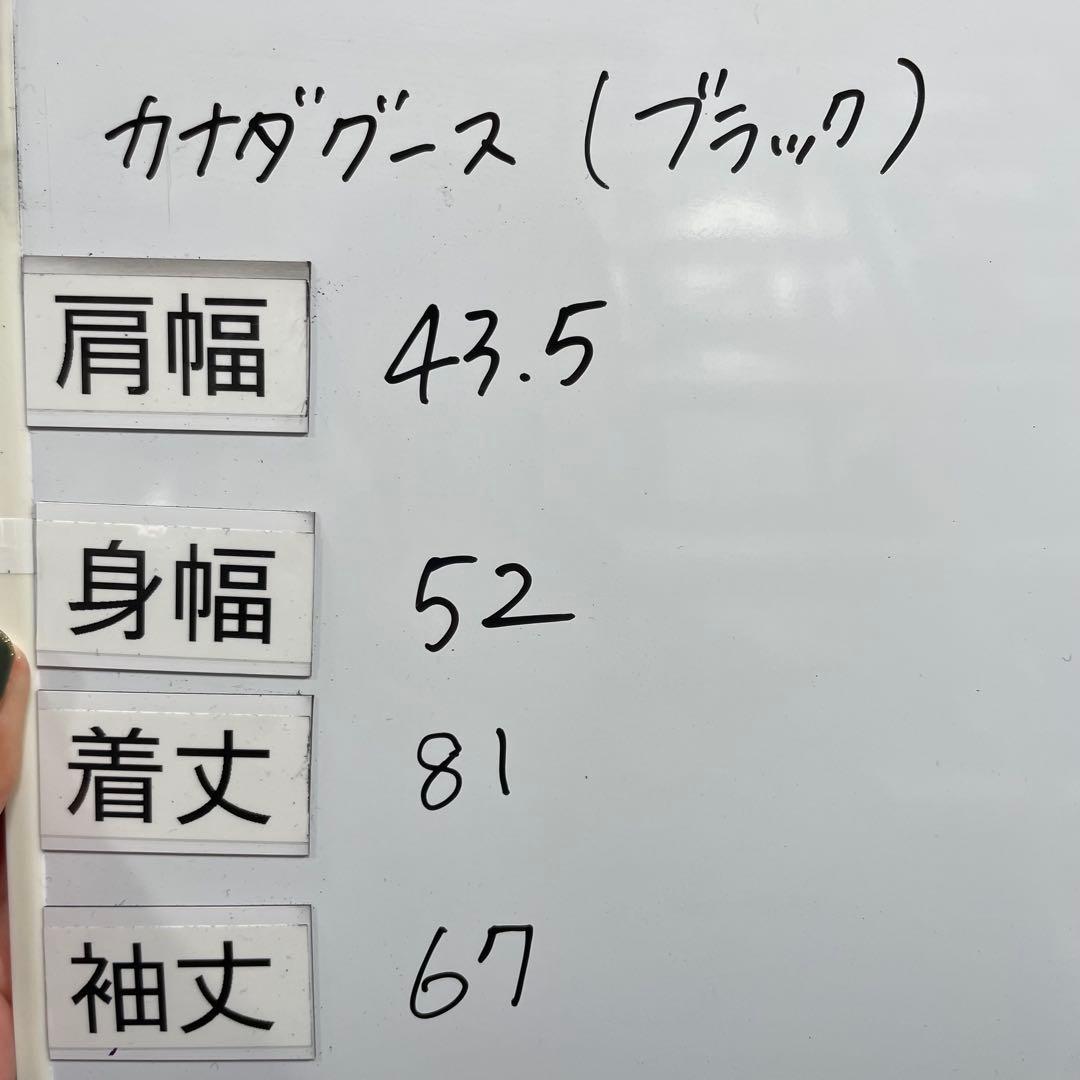 カナダグース(ブラック)
肩幅 43.5
身幅 52
着丈 81
袖丈 67